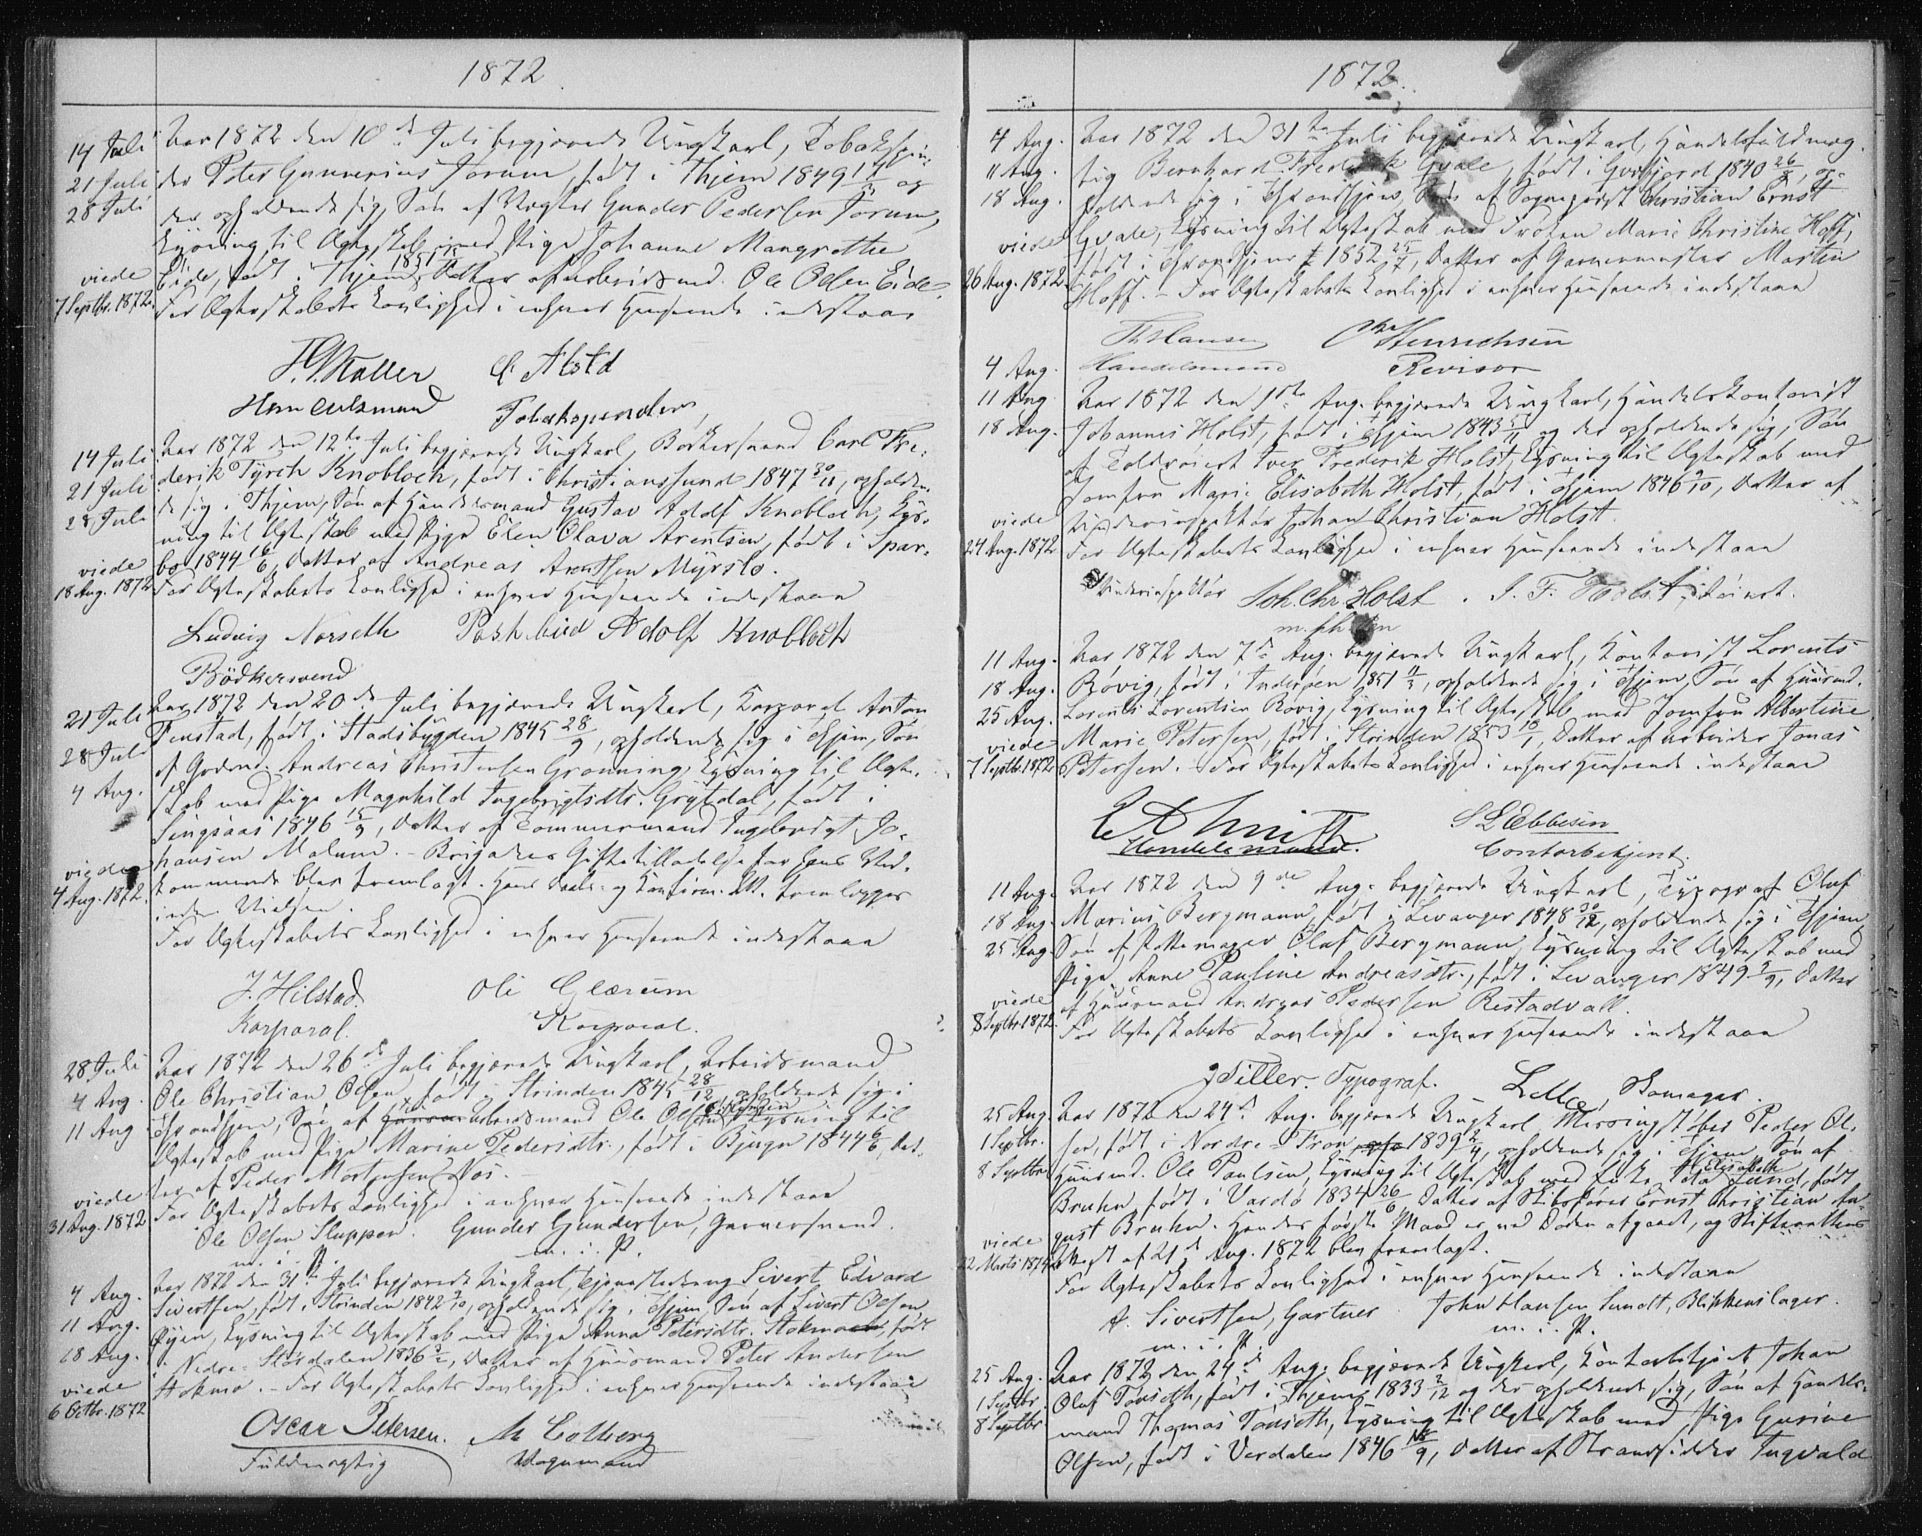 1872.
14 Juli
21 Juli
28 Juli
viede
7 Septbr. 1872.
Aar 1872 den 10de Juli begjærede Ungkarl, Tobakspin-
der Peter Gunnerius Forum, født i Thjem 1849 og
der opholdende sig, Søn af Gunder Pedersen Forum,
Lysning til Ægteskab med Pige Johanne Margrethe
Eide, født i Thjem 1851, Datter af Arbeidsmd. Ole Olsen Eide.
For Ægteskabets Lovlighed i enhver Henseende indestaar
Møller
Alstd
Tobakspinder
14 Juli
21 Juli
28 Juli
viede
18 Aug. 1872
Aar 1872 den 12te Juli begjærede Ungkarl, Bødkersvend Carl Fre-
derik Tyrch Knobloch, født i Christianssund 1847 30/11, opholden-
de sig i Thjem, Søn af Handelsmand Gustav Adolf Knobloch, Lys-
ning til Ægteskab med Pige Elen Olava Arentsen, født i Spar-
bo 1844 16/6, Datter af Andreas Arentsen Myrslo.
For Ægteskabets Lovlighed i enhver Henseende indestaar
Ludvig Norseth Postbud Adolf Knobloch
Bödkersvend
21 Juli
28 Juli
4 Aug.
viede
4 Aug. 1872.
Aar 1872 den 20de Juli begjærede Ungkarl, Korporal Anton
Penstad, født i Stadsbygden 1845 28/9, opholdende sig i Thjem, Søn
af Gbrmd. Andreas Christensen Grønning, Lysning til Ægte-
skab med Pige Magnhild Ingebrigtsdtr. Grytdal, født i
Singsaas 1846 15/9, Datter af Tømmermand Ingebrigt Jo-
hansen Malum. - Brigadens Giftetilladelse for hans Ved-
kommende blev fremlagt. Hans Daabs- og Konfirm. Att. fremlægges
inden Vielsen.
For Ægteskabets Lovlighed i enhver Henseende indestaar
J. Hilstad Ole Glærum
Korporal. Korporal.
28 Juli
4 Aug.
11 Aug
viede
31 Aug. 1872
Aar 1872 den 26de Juli begjærede Ungkarl, Arbeidsmand
Ole Christian Olsen, født i Strinden 1845 28/12, opholdende sig i
Throndhjem, Søn af Arbeidsmand Ole Olsen, Lysning til
Ægteskab med Pige Marine Pedersdtr., født i Bjugn 1844 6/6, Dat-
ter af Peder Mortensen Næs. -
For Ægteskabets Lovlighed i enhver Henseende indestaar
Ole Olsen Sluppen. Gunder Gundersen, Garversvend.
m. i. P. m. i. P.
4 Aug.
11 Aug.
18 Aug.
viede
6 Octbr. 1872
Aar 1872 den 31te Juli begjærede Ungkarl, Tjenestedreng Sivert Edvard
Sivertsen, født i Strinden 1842, opholdende sig i Thjem, Søn af Sivert Olsen
Øyen, Lysning til Ægteskab med Pige Anna Petersdtr. Stokmo, født
i Nedre Stördalen 1836, Datter af Huusmand Peter Andersen
Stokmo. - For Ægteskabets Lovlighed i enhver Henseende indestaar
Oscar Petersen. M Colberg
Fuldmægtig Vognmand
1872.
4 Aug.
11 Aug.
18 Aug.
viede
26 Aug. 1872
Aar 1872 den 31te Juli begjærede Ungkarl, Handelsfuldmæg-
tig Bernhard Frederik Qvale, født i Qvæfjord 1840 26/8, op-
holdende sig i Throndhjem, Søn af Sogneprest Christian Ernst
Qvale, Lysning til Ægteskab med Frøken Marie Christine Hoff,
født i Trondhjem 1852 25/7, Datter af Garvermester Martin
Hoff. - For Ægteskabets Lovlighed i enhver Henseende indestaar
Hansen Henrichsen
Handelsmand Revisor
4 Aug.
11 Aug
18 Aug.
viede
24 Aug. 1872
Aar 1872 den 1ste Aug. begjærede Ungkarl, Handelskontorist
Johannes Holst, født i Thjem 1843 og der opholdende sig, Søn
af Toldroiert Iver Frederik Holst, Lysning til Ægteskab med
Jomfru Marie Elisabeth Holst, født i Thjem 1846 9/10, Datter af
Johan Christian Holst.
For Ægteskabets Lovlighed i enhver Henseende indestaar
Joh. Chr. Holst. I. F. Holst
11 Aug.
18 Aug.
25 Aug.
viede
7 Septbr. 1872
Aar 1872 den 7de Aug. begjærede Ungkarl, Kontorist Lorents
Røvig, født i Inderøen 1851, opholdende sig i Thjem, Søn af Huusmd.
Lorents Lorentsen Røvig, Lysning til Ægteskab med Jomfru Albertine
Marie Petersen, født i Strinden 1853, Datter af Arbeider Jonas
Petersen. For Ægteskabets Lovlighed i enhver Henseende indestaar
Smith Ebbesen
Handelsmand. Contorbetjent.
11 Aug.
18 Aug
25 Aug
viede
8 Septbr. 1872.
Aar 1872 den 9de Aug. begjærede Ungkarl, Typograf Oluf
Marius Bergmann, født i Levanger 1848 30/12, opholdende sig i Thjem,
Søn af Pottemager Oluf Bergmann, Lysning til Ægteskab med
Pige Anne Pauline Andreasdtr., født i Levanger 1849, Datter
af Huusmand Andreas Pedersen Restadvall.
For Ægteskabets Lovlighed i enhver Henseende indestaar
Tiller. Typograf. Skomager.
25 Aug
1 Septbr.
8 Septbr
viede
22 Marts 1874
Aar 1872 den 24de Aug. begjærede Ungkarl Messingstøber Peder Ol-
sen, født i Nordre Fron 1839, opholdende sig i Thjem, Søn af
Huusmd. Ole Paulsen, Lysning til Ægteskab med Enke Elisabeth Lund, født
Bruhn, født i Vardö 1834 26/6, Datter af Skibsfører Ernst Christian Au-
gust Bruhn. Hendes første Mand er ved Døden afgaaet, og Skifterettens
Attest af 21de Aug. 1872 blev fremlagt.
For Ægteskabets Lovlighed i enhver Henseende indestaar
A. Sivertsen, Gartner John Hansen Sundt, Blikkenslager.
m. i. P. m. i. P.
25 Aug.
1 Septbr.
8 Septbr
Aar 1872 den 24de Aug. begjærede Ungkarl, Kontorbetjent Johan
Oluf Tønseth, født i Thjem 1833 2/12 og der opholdende sig, Søn af Handels-
mand Thomas Tønseth, Lysning til Ægteskab med Pige Gusine
Olsen, født i Verdalen 1846, Datter af Strandsidder Ingvald